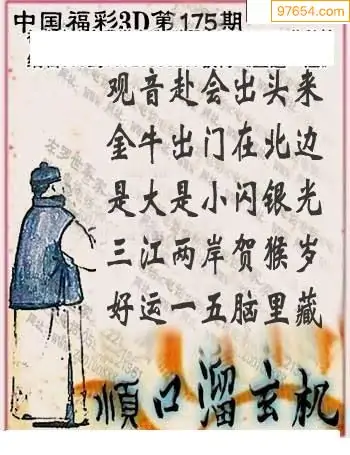 97654.com
中国福彩3D第175期
观音赴会出头来
金牛出门在北边
是大是小闪银光
三江两岸贺猴岁
好运一五脑里藏
顺口溜玄机